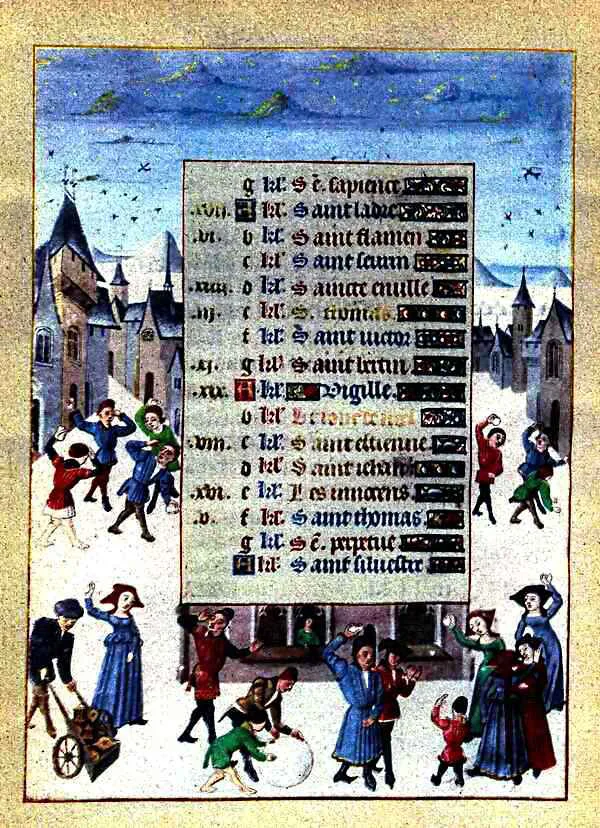 g kl' S e. sapience.
.xvii. A kl' Saint ladre
.vi. b kl' Saint flamen.
c kl' Saint seurin
.xiiii. d kl' Saincte
.iii. kl' S. thomas.
f kl' Saint uictor
.xi. g kl' Saint
.xix. A kl' Vigille.
b kl'
.viii. c kl' Saint estienne
d kl' Saint iehan
.xvi. e kl' Les innocens.
.v. f kl' Saint thomas.
g kl' S e. perpetue
A kl' Saint siluestre.